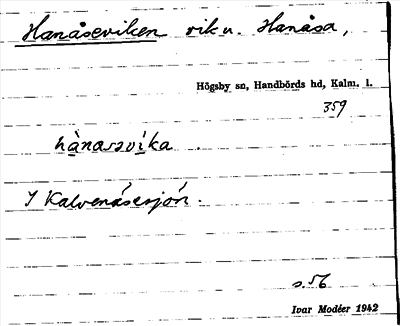 Hanåseviken vik u. Hanåsa,
Högsby sn, Handbörds hd, Kalm. l.
359
hànasəvíka
I Kalvenäsesjön.
s. 56
Ivar Modéer 1942